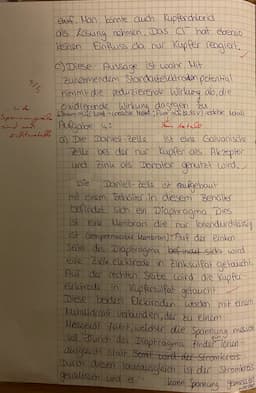 auf. Man könnte auch Kupferchlorid
als Lösung nehmen, Das Cl⁻ hat ebenso
keinen Einfluss da nur Kupfer reagiert.
c) Diese Aussage ist wahr. Mit
zunehmendem Standardelektrodenpotential
nimmt die reduzierende Wirkung ab, die
oxidierende Wirkung dagegen zu
Aufgabe 4:
a) Die Daniell-Zelle ist eine Galvanische
Zelle bei der nur Kupfer als Akzeptor
und Zink als Donator genutzt wird.
Die Daniell-Zelle ist aufgebaut
mit einem Behälter in diesem Behälter
befindet sich ein Diaphragma. Dies
ist eine Membran die nur Ionendurchlässig
ist (semipermeable Membran). Auf der linken
Seite des Diaphragma befindet sich wird
eine Zinkelektrode in Zinksulfat getaucht.
Auf der rechten Seite wird die Kupfer
elektrode in Kupfersulfat getaucht.
Diese beiden Elektroden werden mit einem
Metalldraht verbunden, der zu einem
Messgerät führt, welcher die Spannung
Durch das Diaphragma findet Ionen
ausgleich statt Somit wird der Stromkreis
Durch diesen Ionenausgleich ist der Stromkreis
geschlossen und es kann Spannung